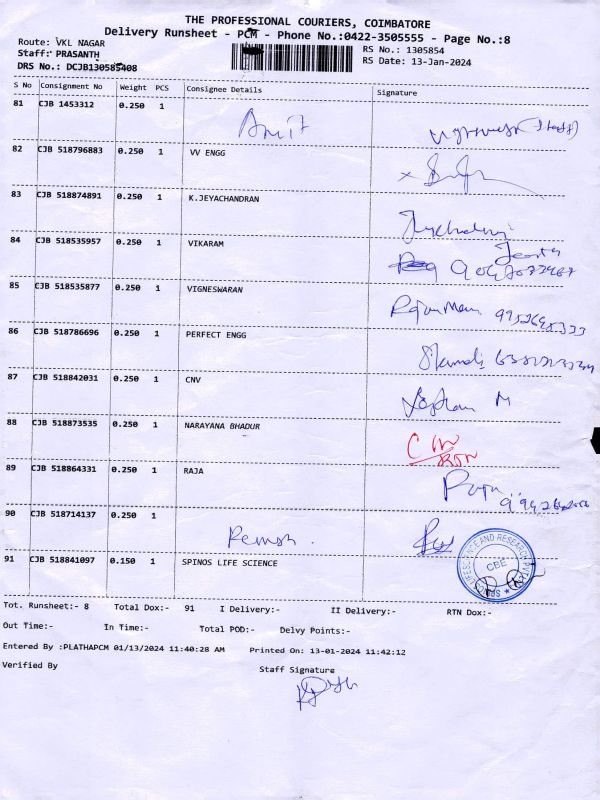 THE PROFESSIONAL COURIERS, COIMBATORE
Delivery Runsheet - PCM - Phone No.:0422-3505555 - Page No.:8
Route: VKL NAGAR
Staff: PRASANTH
DRS No.: DCJB130585408
RS No.: 1305854
RS Date: 13-Jan-2024
S No Consignment No Weight PCS Consignee Details Signature
81 CJB 1453312 0.250 1 Amit
82 CJB 518796883 0.250 1 VV ENGG
83 CJB 518874891 0.250 1 K.JEYACHANDRAN
84 CJB 518535957 0.250 1 VIKARAM
85 CJB 518535877 0.250 1 VIGNESWARAN
86 CJB 518786696 0.250 1 PERFECT ENGG
87 CJB 518842031 0.250 1 CNV
88 CJB 518873535 0.250 1 NARAYANA BHADUR
89 CJB 518864331 0.250 1 RAJA
90 CJB 518714137 0.250 1
91 CJB 518841097 0.150 1 SPINOS LIFE SCIENCE CBE
Tot. Runsheet:- 8 Total Dox:- 91 I Delivery:- II Delivery:- RTN Dox:-
Out Time:- In Time:- Total POD:- Delvy Points:-
Entered By :PLATHAPCM 01/13/2024 11:40:28 AM Printed On: 13-01-2024 11:42:12
Verified By Staff Signature